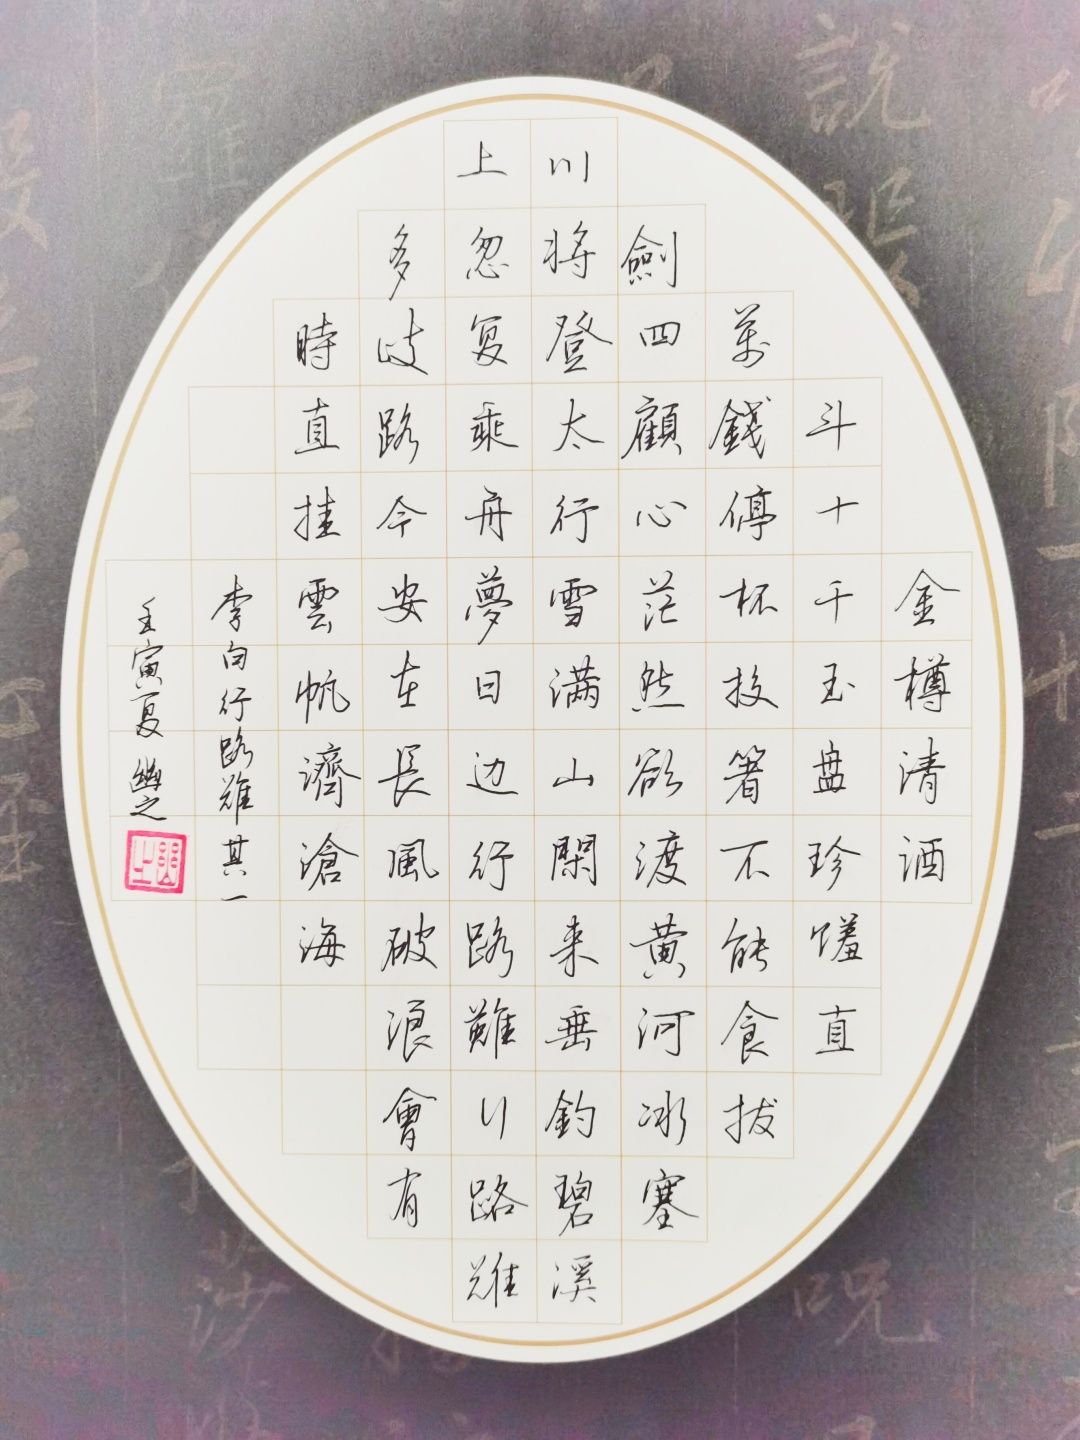 金樽清酒
斗十千玉盘珍馐直
萬錢停杯投箸不能食拔
劍四顧心茫然欲渡黄河冰塞
川将登太行雪满山閑来垂钓碧溪
上忽复乘舟夢日边行路難行路难
多歧路今安在長風破浪會有
時直挂雲帆濟滄海
李白行路难其一
壬寅夏 幽之
説
咒